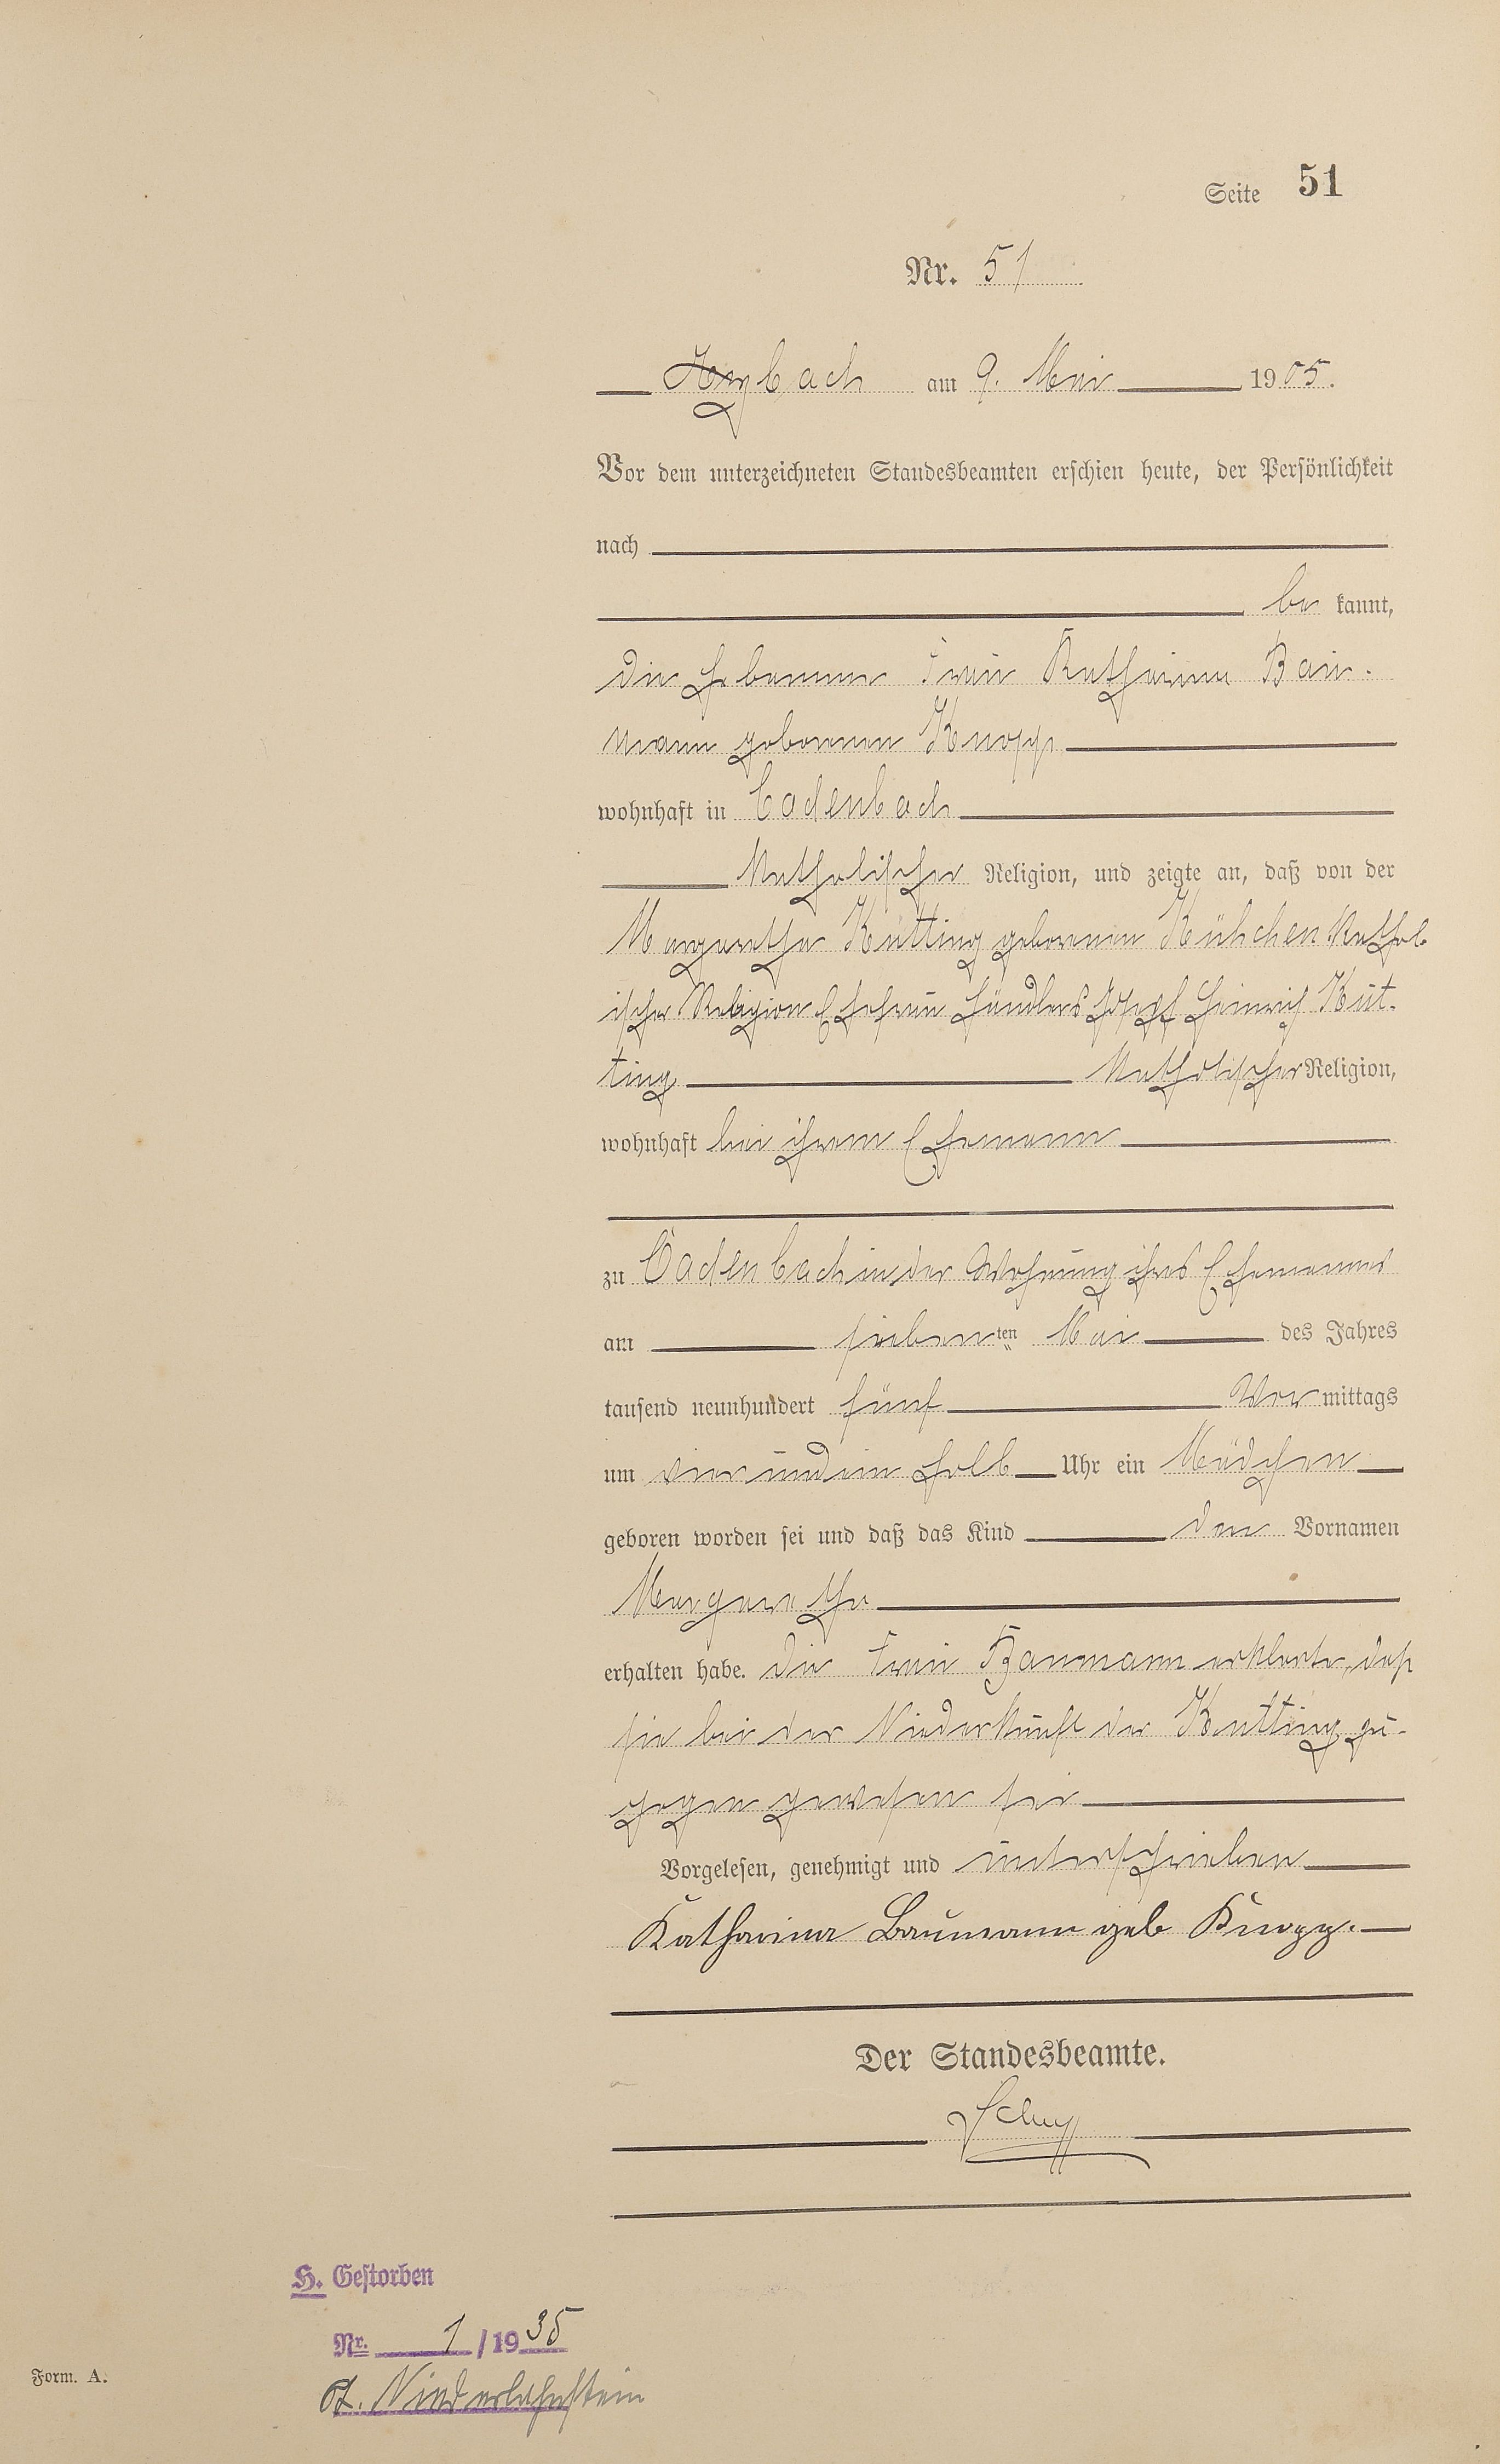 Seite 51
Nr. 51
Arzbach am 9. Mai 1905.
Vor dem unterzeichneten Standesbeamten erschien heute, der Persönlichkeit
nach
be kannt,
die Hebamme Frau Katharina Bau-
mann geborenen Knopp
wohnhaft in Cadenbach
Katholischer Religion, und zeigte an, daß von der
Margaretha Kütting geborenen Kühchen Kathol
ischer Religion Ehefrau Händlers Josef Heinrich Küt-
ting Katholischer Religion,
wohnhaft bei ihrem Ehemann
zu Cadenbach in der Wohnung ihres Ehemannes
am sieben ten Mai des Jahres
tausend neunhundert fünf Vor mittags
um vier und ein halb Uhr ein Mädchen
geboren worden sei und daß das Kind den Vornamen
Margaretha
erhalten habe. Die Frau Baumann erklerte, daß
sie bei der Niederkunft der Kutting zu-
gegen gewesen sei
Vorgelesen, genehmigt und unterschrieben
Katharina Baumann geb Knopp.
Der Standesbeamte.
H. Gestorben
Nr. 1 /1935
St. Niederlahnstein
Form. A.